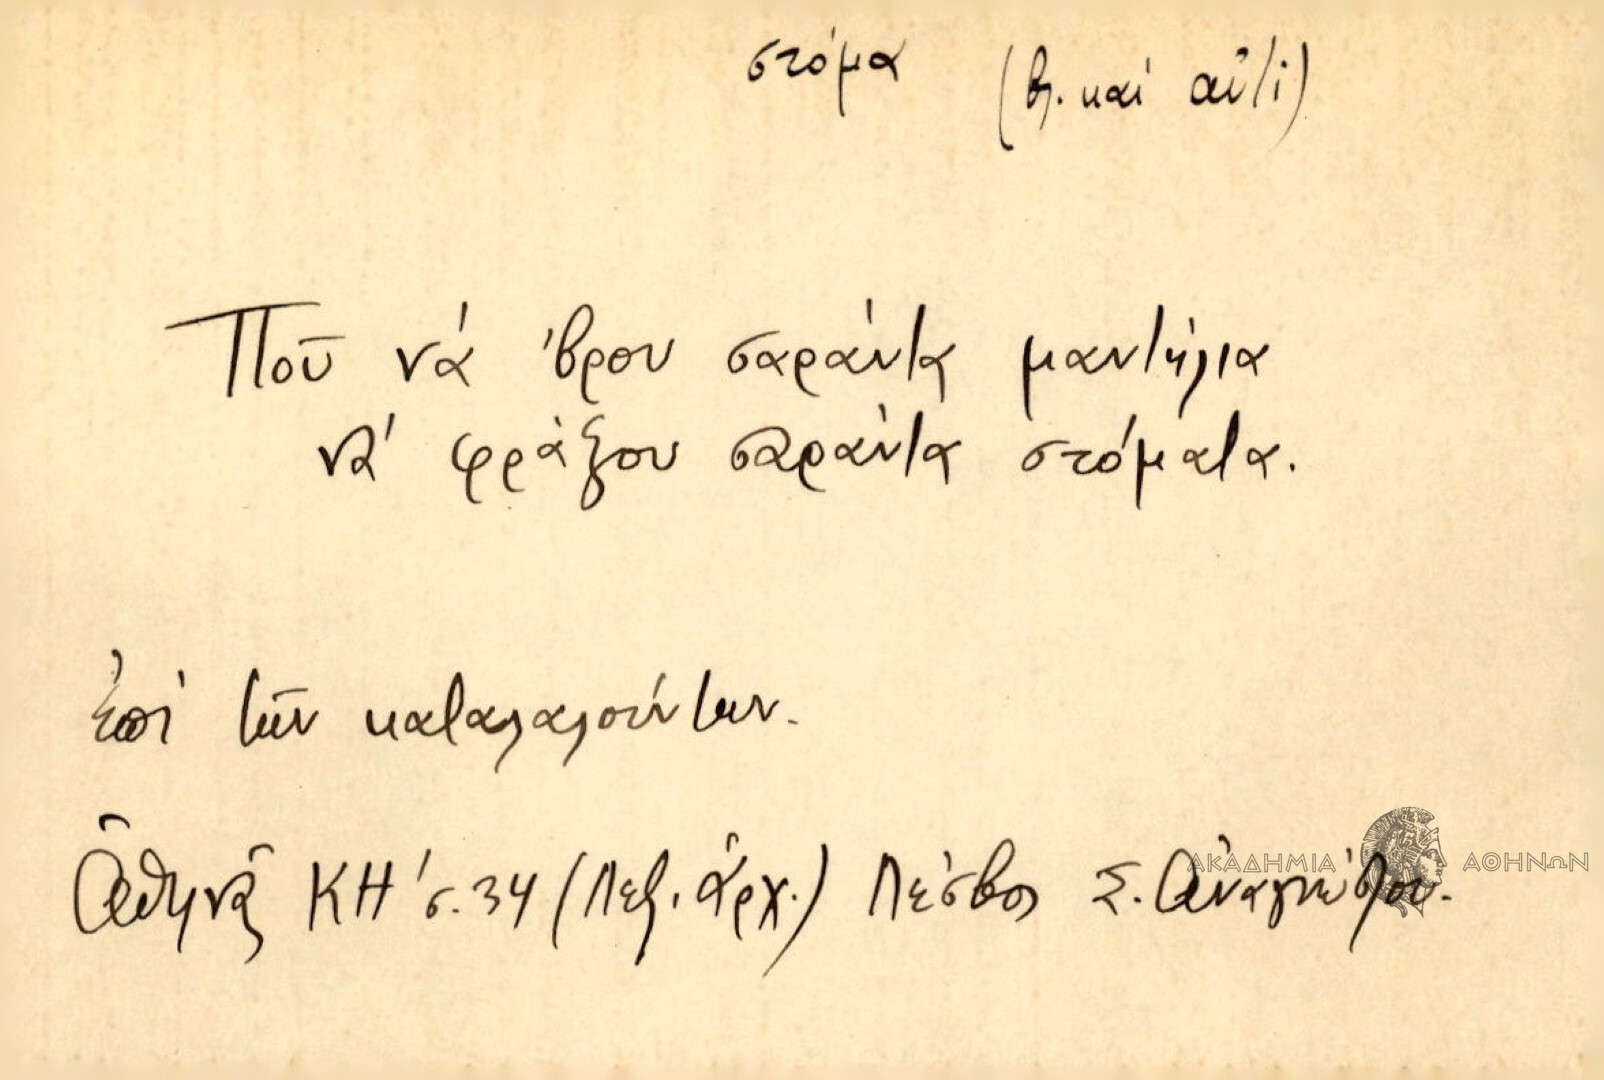 στόμα (βλ. καὶ αὐτί)
Ποῦ νά 'βρου σαράντα μαντήλια
νά φράξου σαράντα στόματα.
Ἐπὶ τῶν καταλαλούντων.
Ἀθηνᾶ ΚΗ' σ. 34 (Λεξ. Ἀρχ.) Λέσβος Σ. Ἀναγνώστου.
ΑΚΑΔΗΜΙΑ ΑΘΗΝΩΝ